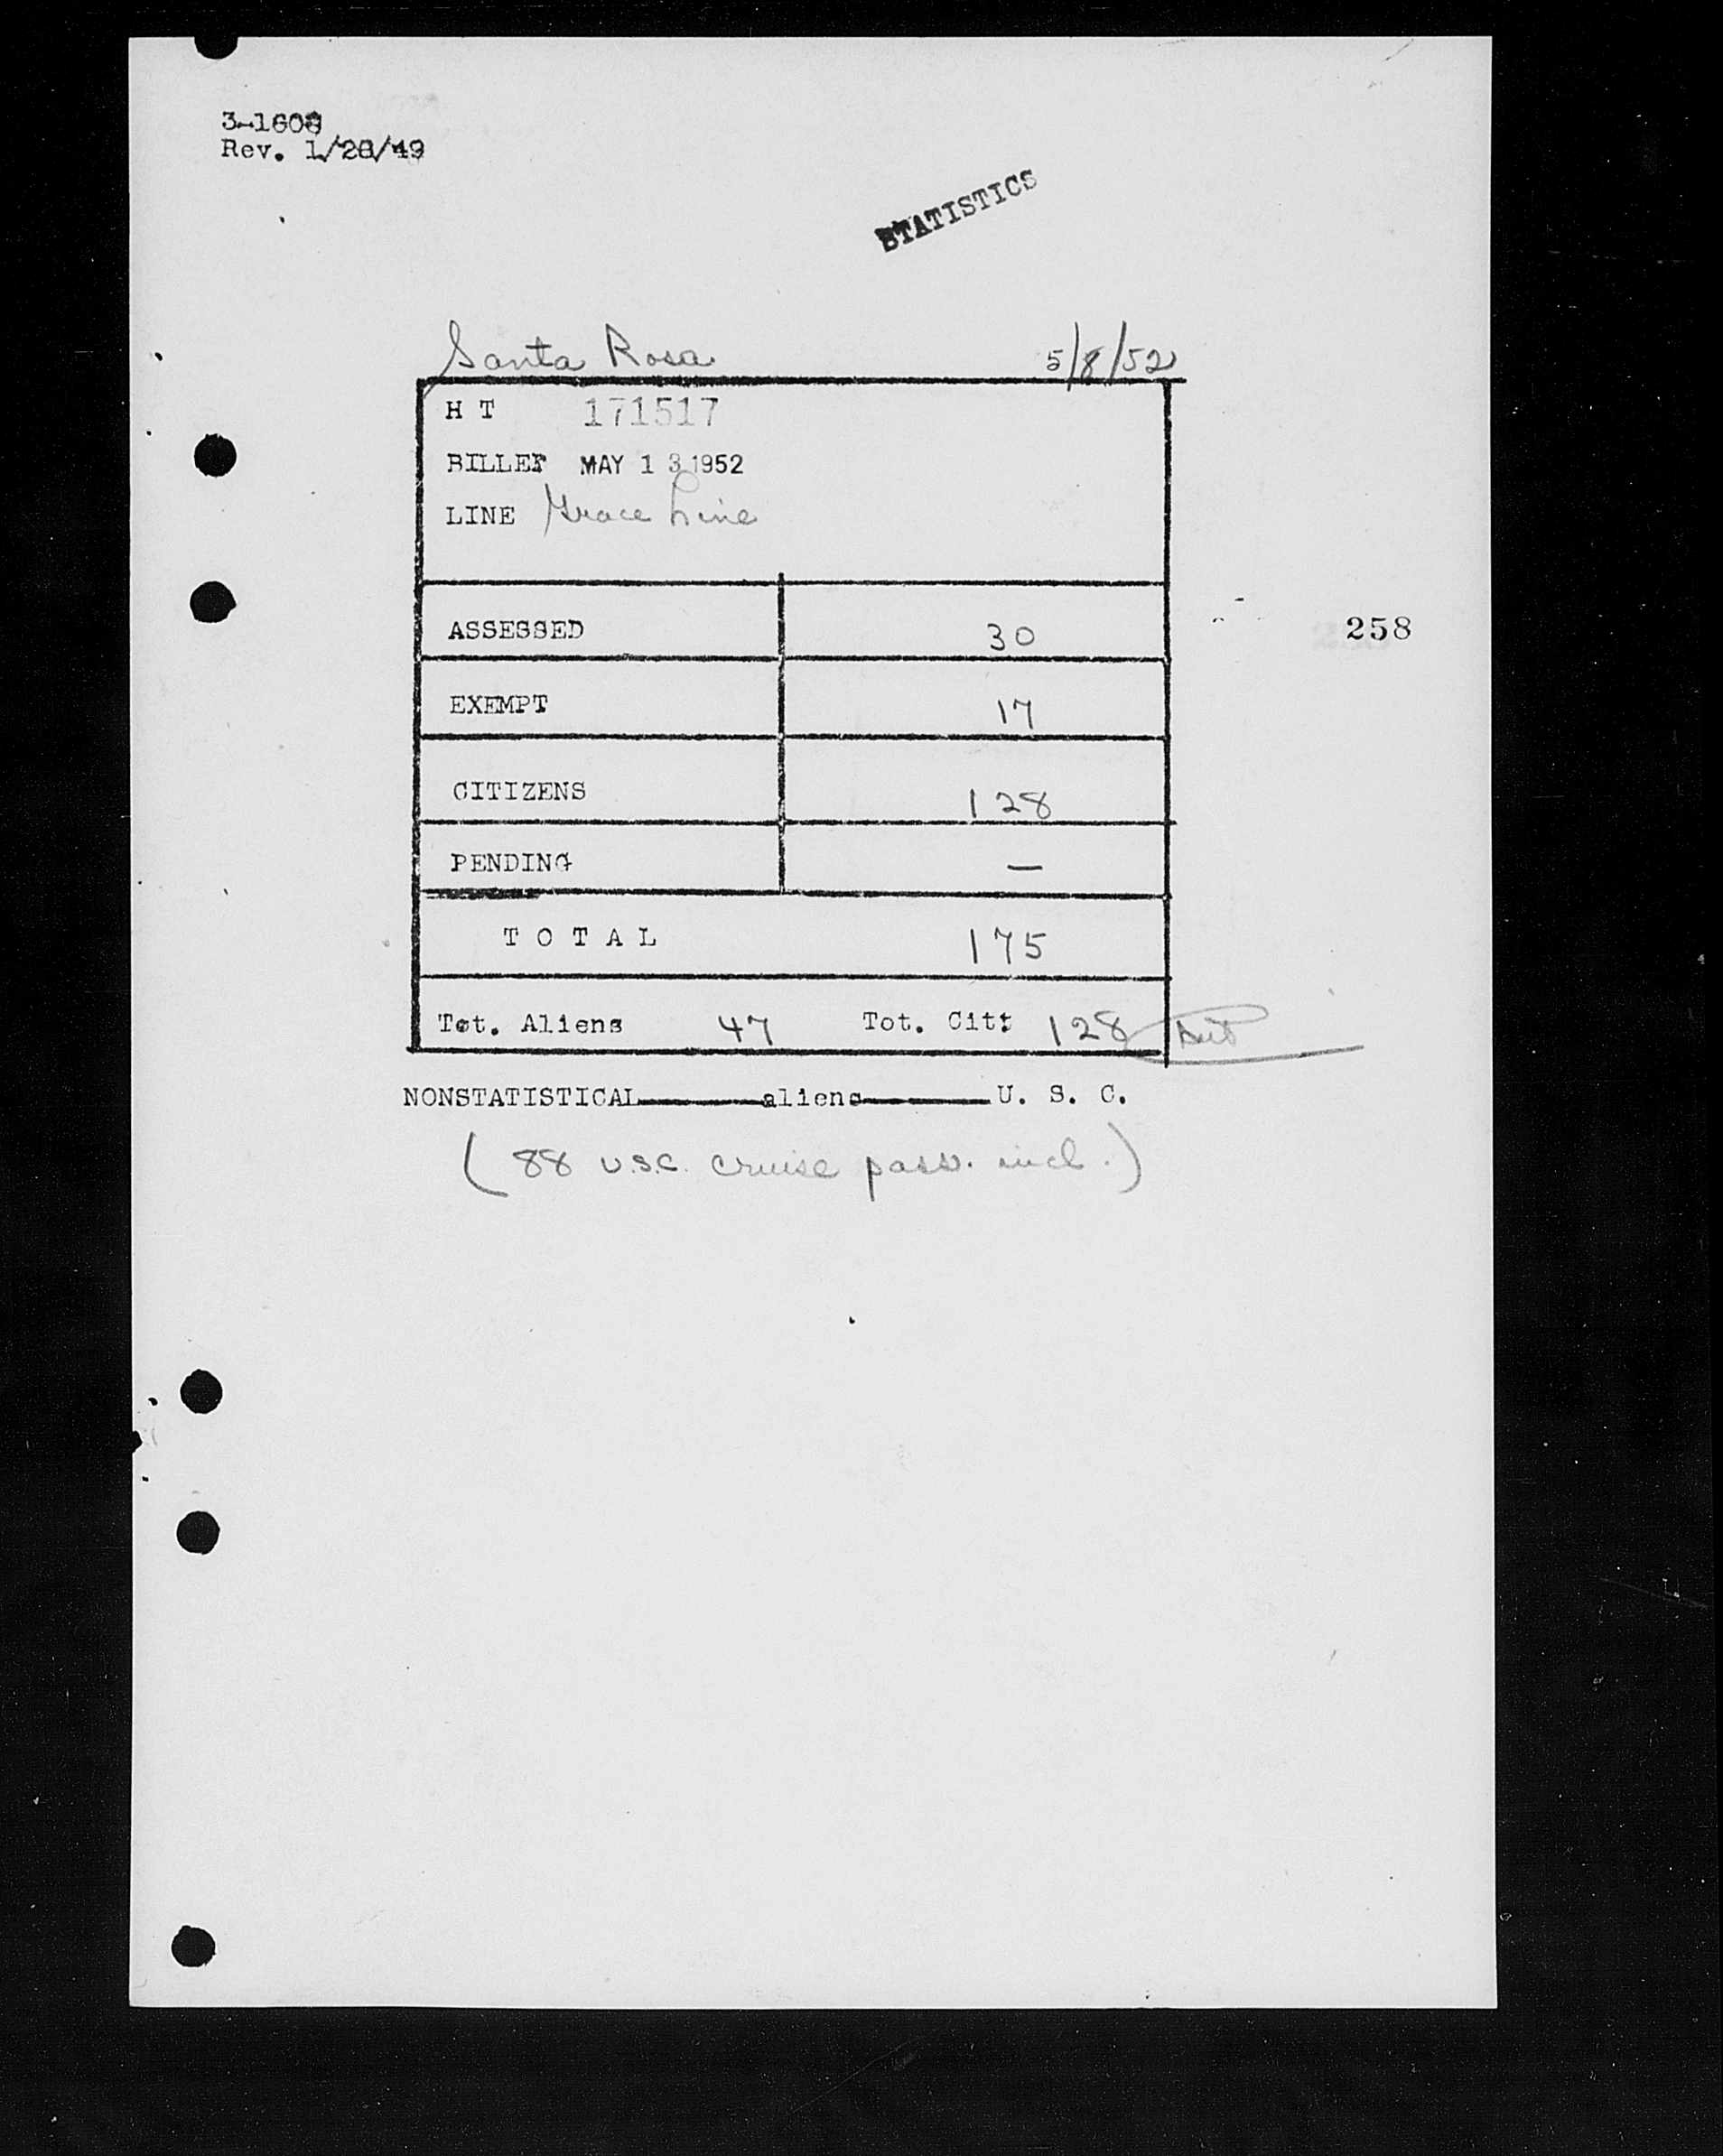 3-1608
Rev. 1/28/49
STATISTICS
Santa Rosa 5/8/52
H T 171517
BILLET MAY 13 1952
LINE Grace Line
258
ASSESSED 30
EXEMPT 17
CITIZENS 128
PENDING —
T O T A L 175
Tot. Aliens 47 Tot. Cit: 128
NONSTATISTICAL______aliens______U. S. C.
(88 U.S.C. cruise pass. incl.)